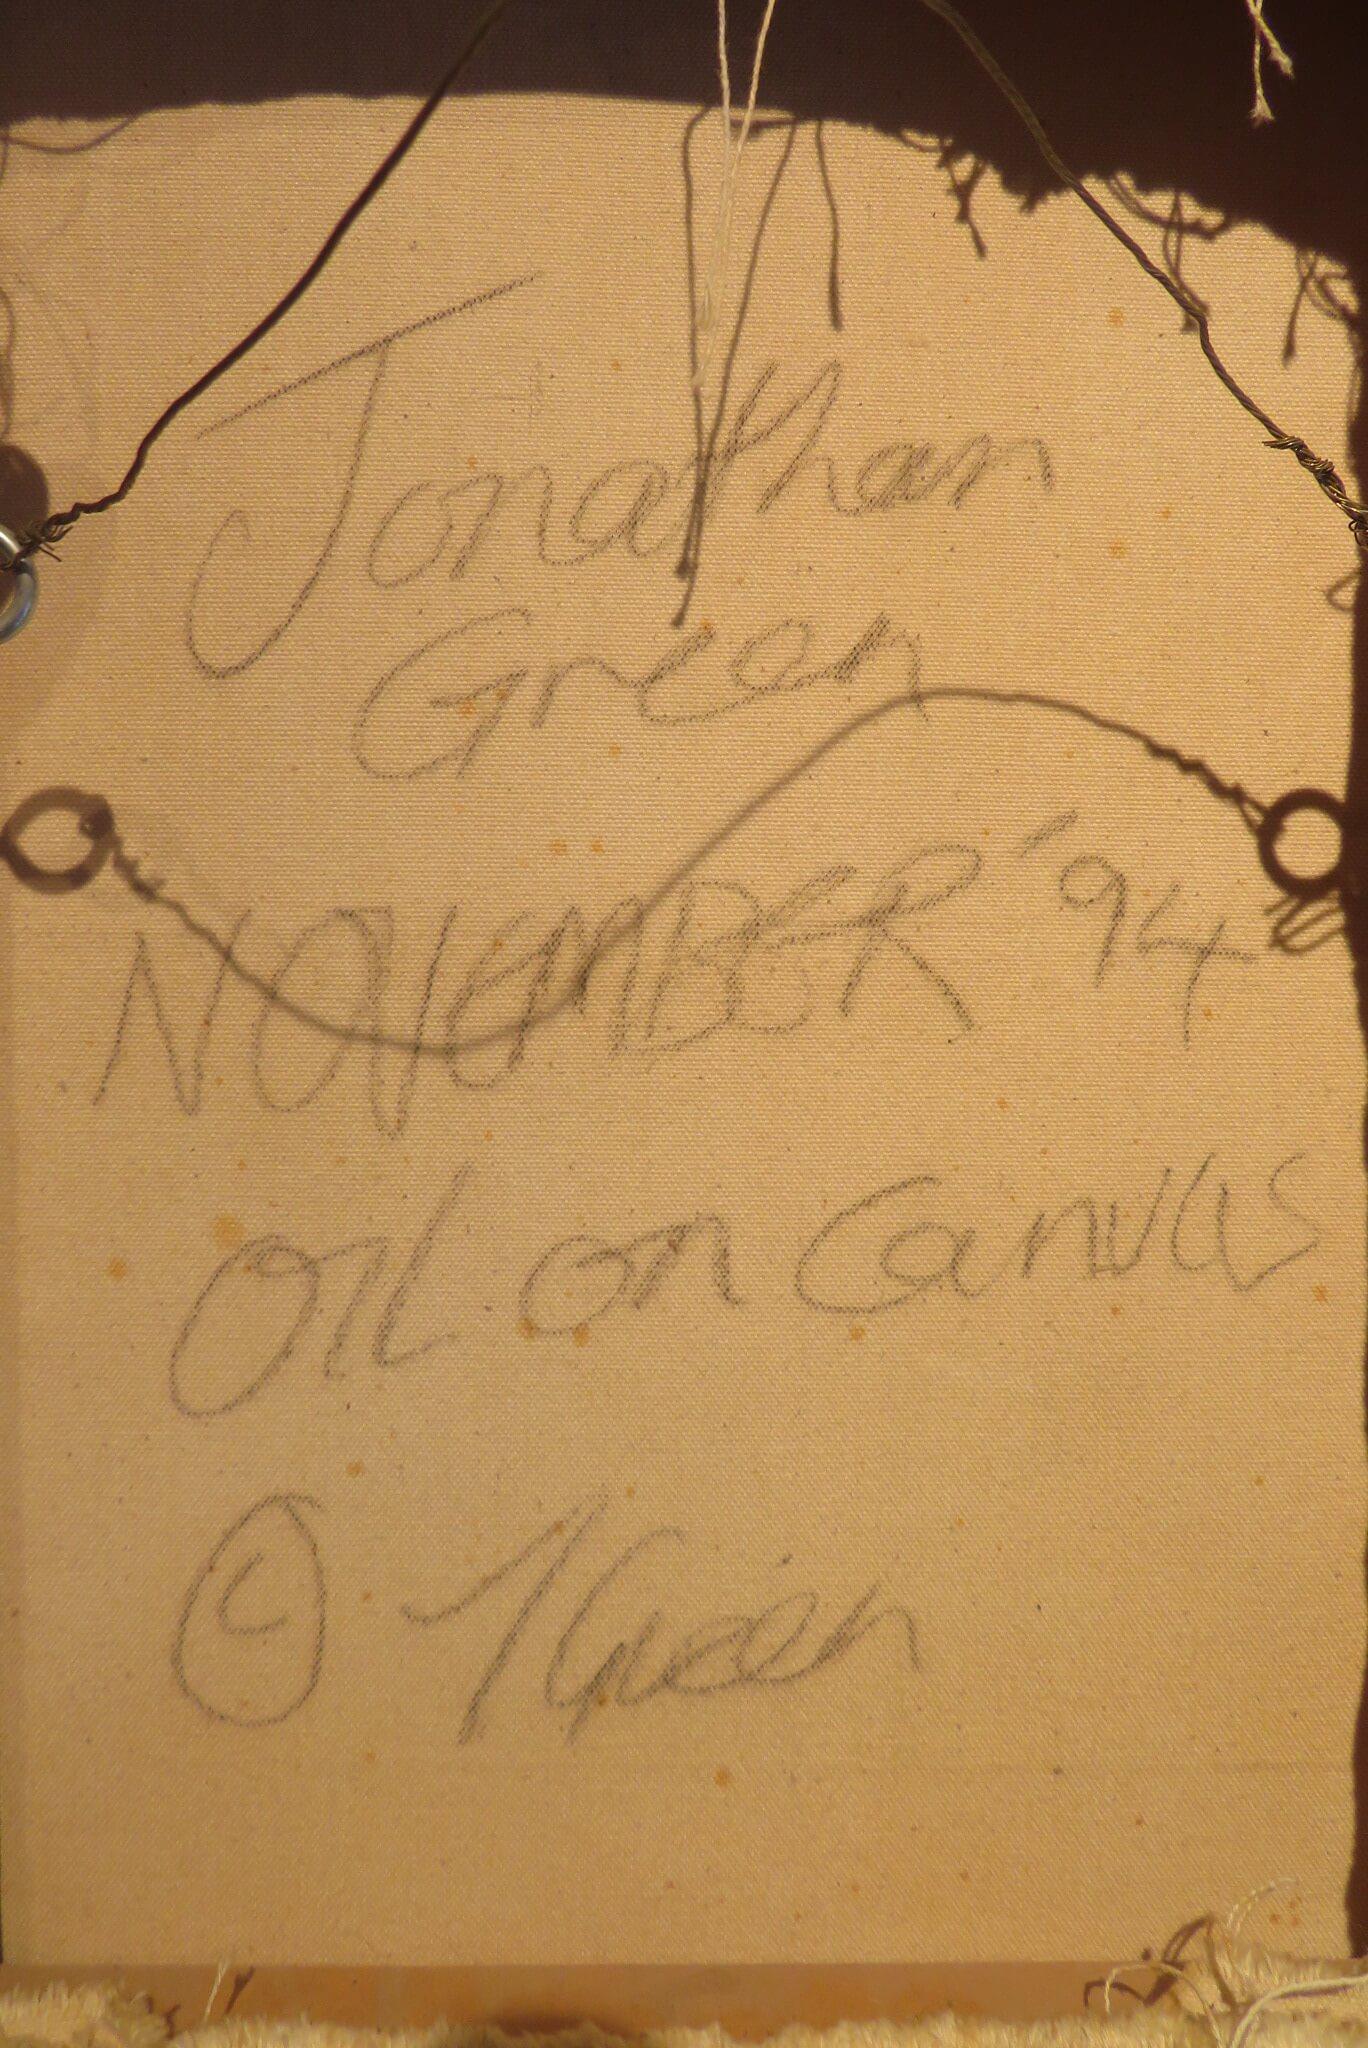 Jonathan
Green
NOVEMBER '94
OIL on Canvas
© JGreen